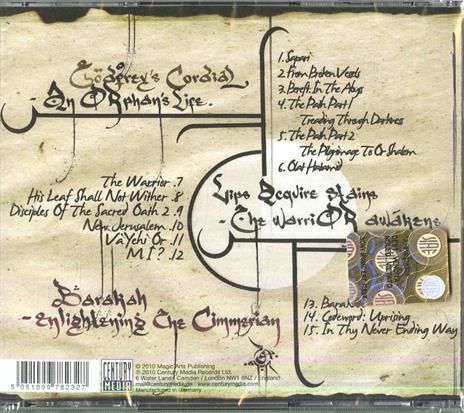 Godfrey's Cordial
- An ORphan's Life.
1. Sapari
2. From Broken Vessels
3. Bereft In The Abyss
4. The Path Part 1
Treading Through Darkness
5. The Path Part 2
The Pilgrimage To Or Shalem
6. Olat Ha'tamid
Lips Acquire Stains
- The WarriOR Awakens
The Warrior .7
His Leaf Shall Not Wither .8
Disciples Of The Sacred Oath 2 .9
New Jerusalem .10
VaYehi Or .11
M I ? .12
Barakah
- Enlightening The Cimmerian
13. Barakah
14. Codeword: Uprising
15. In Thy Never Ending Way
5 051099 782327
CENTURY
MEDIA
℗ 2010 Magic Arts Publishing
© 2010 Century Media Records Ltd.
6 Water Lane / Camden / London NW1 8NZ / England
mail@centurymedia.com - www.centurymedia.com
Manufactured in Germany